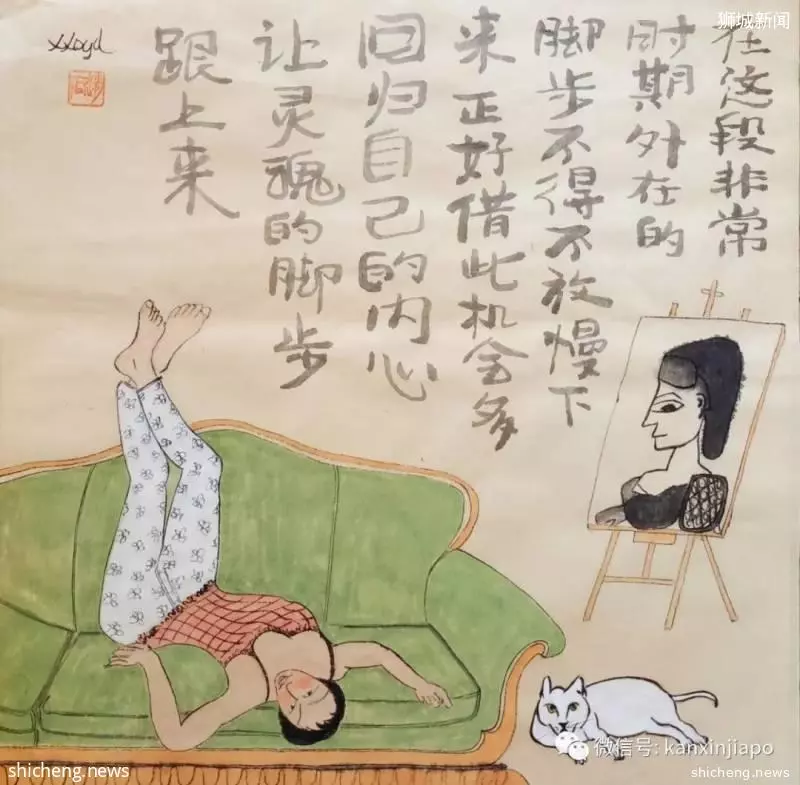 狮城新闻
在这段非常
时期外在的
脚步不得不放慢下
来正好借此机会多
回归自己的内心
让灵魂的脚步
跟上来
微信号: kanxinjiapo
shicheng.news
shicheng.news